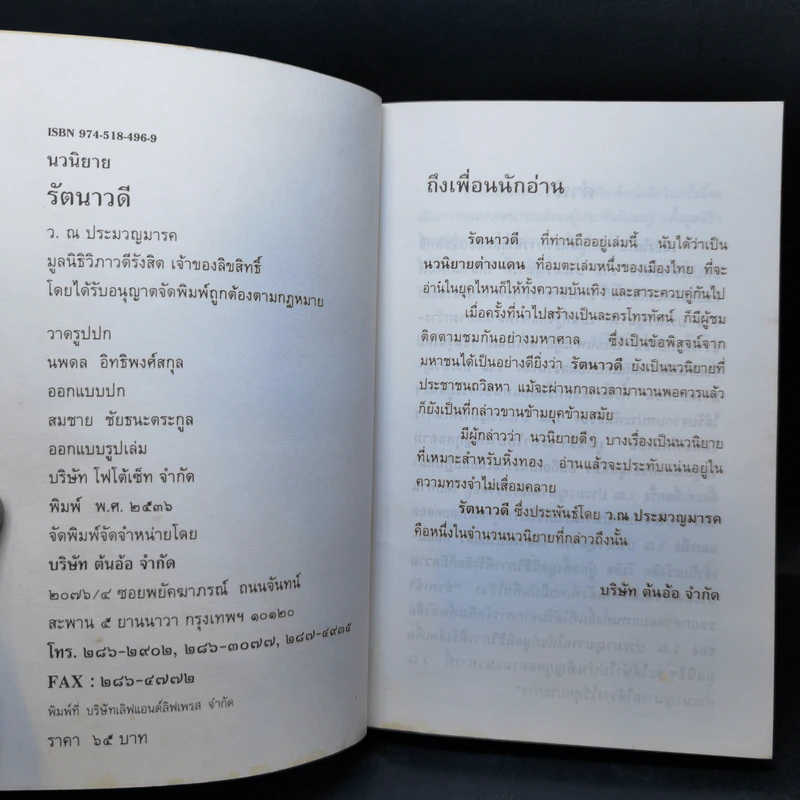 ISBN 974-518-496-9
นวนิยาย
รัตนาวดี
ว. ณ ประมวญมารค
มูลนิธิวิภาวดีรังสิต เจ้าของลิขสิทธิ์
โดยได้รับอนุญาตจัดพิมพ์ถูกต้องตามกฎหมาย
วาดรูปปก
นพดล อิทธิพงศ์สกุล
ออกแบบปก
สมชาย ชัยธนะตระกูล
ออกแบบรูปเล่ม
บริษัท โฟโต้เซ็ท จำกัด
พิมพ์ พ.ศ. ๒๕๓๖
จัดพิมพ์จัดจำหน่ายโดย
บริษัท ต้นอ้อ จำกัด
๒๐๗๖/๔ ซอยพยัคฆาภรณ์ ถนนจันทน์
สะพาน ๕ ยานนาวา กรุงเทพฯ ๑๐๑๒๐
โทร. ๒๘๖-๒๙๐๒, ๒๘๖-๓๐๗๗, ๒๘๗-๔๙๓๕
FAX : ๒๘๖-๔๗๗๒
พิมพ์ที่ บริษัทเลิฟแอนด์ลิฟเพรส จำกัด
ราคา ๖๕ บาท
ถึงเพื่อนนักอ่าน
รัตนาวดี ที่ท่านถืออยู่เล่มนี้ นับได้ว่าเป็น
นวนิยายต่างแดน ที่อมตะเล่มหนึ่งของเมืองไทย ที่จะ
อ่านในยุคไหนก็ให้ทั้งความบันเทิง และสาระควบคู่กันไป
เมื่อครั้งที่นำไปสร้างเป็นละครโทรทัศน์ ก็มีผู้ชม
ติดตามชมกันอย่างมหาศาล ซึ่งเป็นข้อพิสูจน์จาก
มหาชนได้เป็นอย่างดียิ่งว่า รัตนาวดี ยังเป็นนวนิยายที่
ประชาชนถวิลหา แม้จะผ่านกาลเวลามานานพอควรแล้ว
ก็ยังเป็นที่กล่าวขานข้ามยุคข้ามสมัย
มีผู้กล่าวว่า นวนิยายดีๆ บางเรื่องเป็นนวนิยาย
ที่เหมาะสำหรับหิ้งทอง อ่านแล้วจะประทับแน่นอยู่ใน
ความทรงจำไม่เสื่อมคลาย
รัตนาวดี ซึ่งประพันธ์โดย ว.ณ ประมวญมารค
คือหนึ่งในจำนวนนวนิยายที่กล่าวถึงนั้น
บริษัท ต้นอ้อ จำกัด